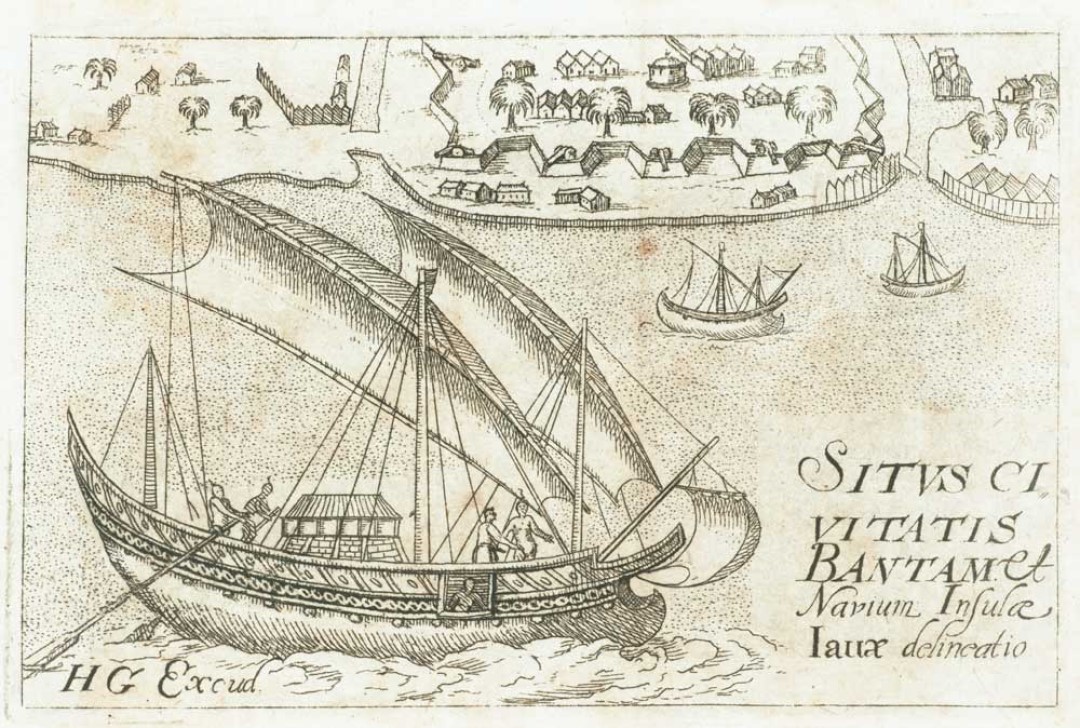 SITVS CI,
VITATIS
BANTAM et
Navium Insulæ
Iauæ delineatio
HG Excud.